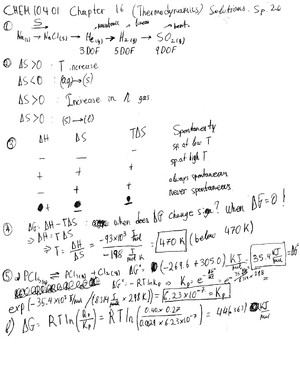 CHEM 104 01 Chapter 16 (Thermodynamics) Solutions. Sp. 20
① S
Na(s) → NaCl(s) → He(g) → H2(g) → SO2(g)
3 DOF 5 DOF 9 DOF
② ΔS>0 : T increase
ΔS<0 : (aq) → (s)
ΔS>0 : Increase in n gas.
ΔS>0 : (s) → (l)
③ ΔH ΔS TΔS Spontaneity
− − − sp at low T
+ + + sp at high T
− + + always spontaneous
+ − − never spontaneous
④ ΔG = ΔH − TΔS : when does ΔG change sign? When ΔG = 0!
⇒ ΔH = TΔS
⇒ T = ΔH/ΔS = −93×10³ J/mol / −198 J/mol K = 470 K (below 470 K)
⑤ PCl5(g) ⇌ PCl3(g) + Cl2(g) ΔG° = (−269.6 + 305.0) kJ/mol = 35.4 kJ/mol = ΔG°
ΔG° = −RT ln Kp ⇒ Kp =
exp(−35.4×10³ J/mol / (8.314 × 298 K)) = 6.23×10⁻⁷ = Kp
ΔG = RT ln(Qp/Kp) = RT ln(